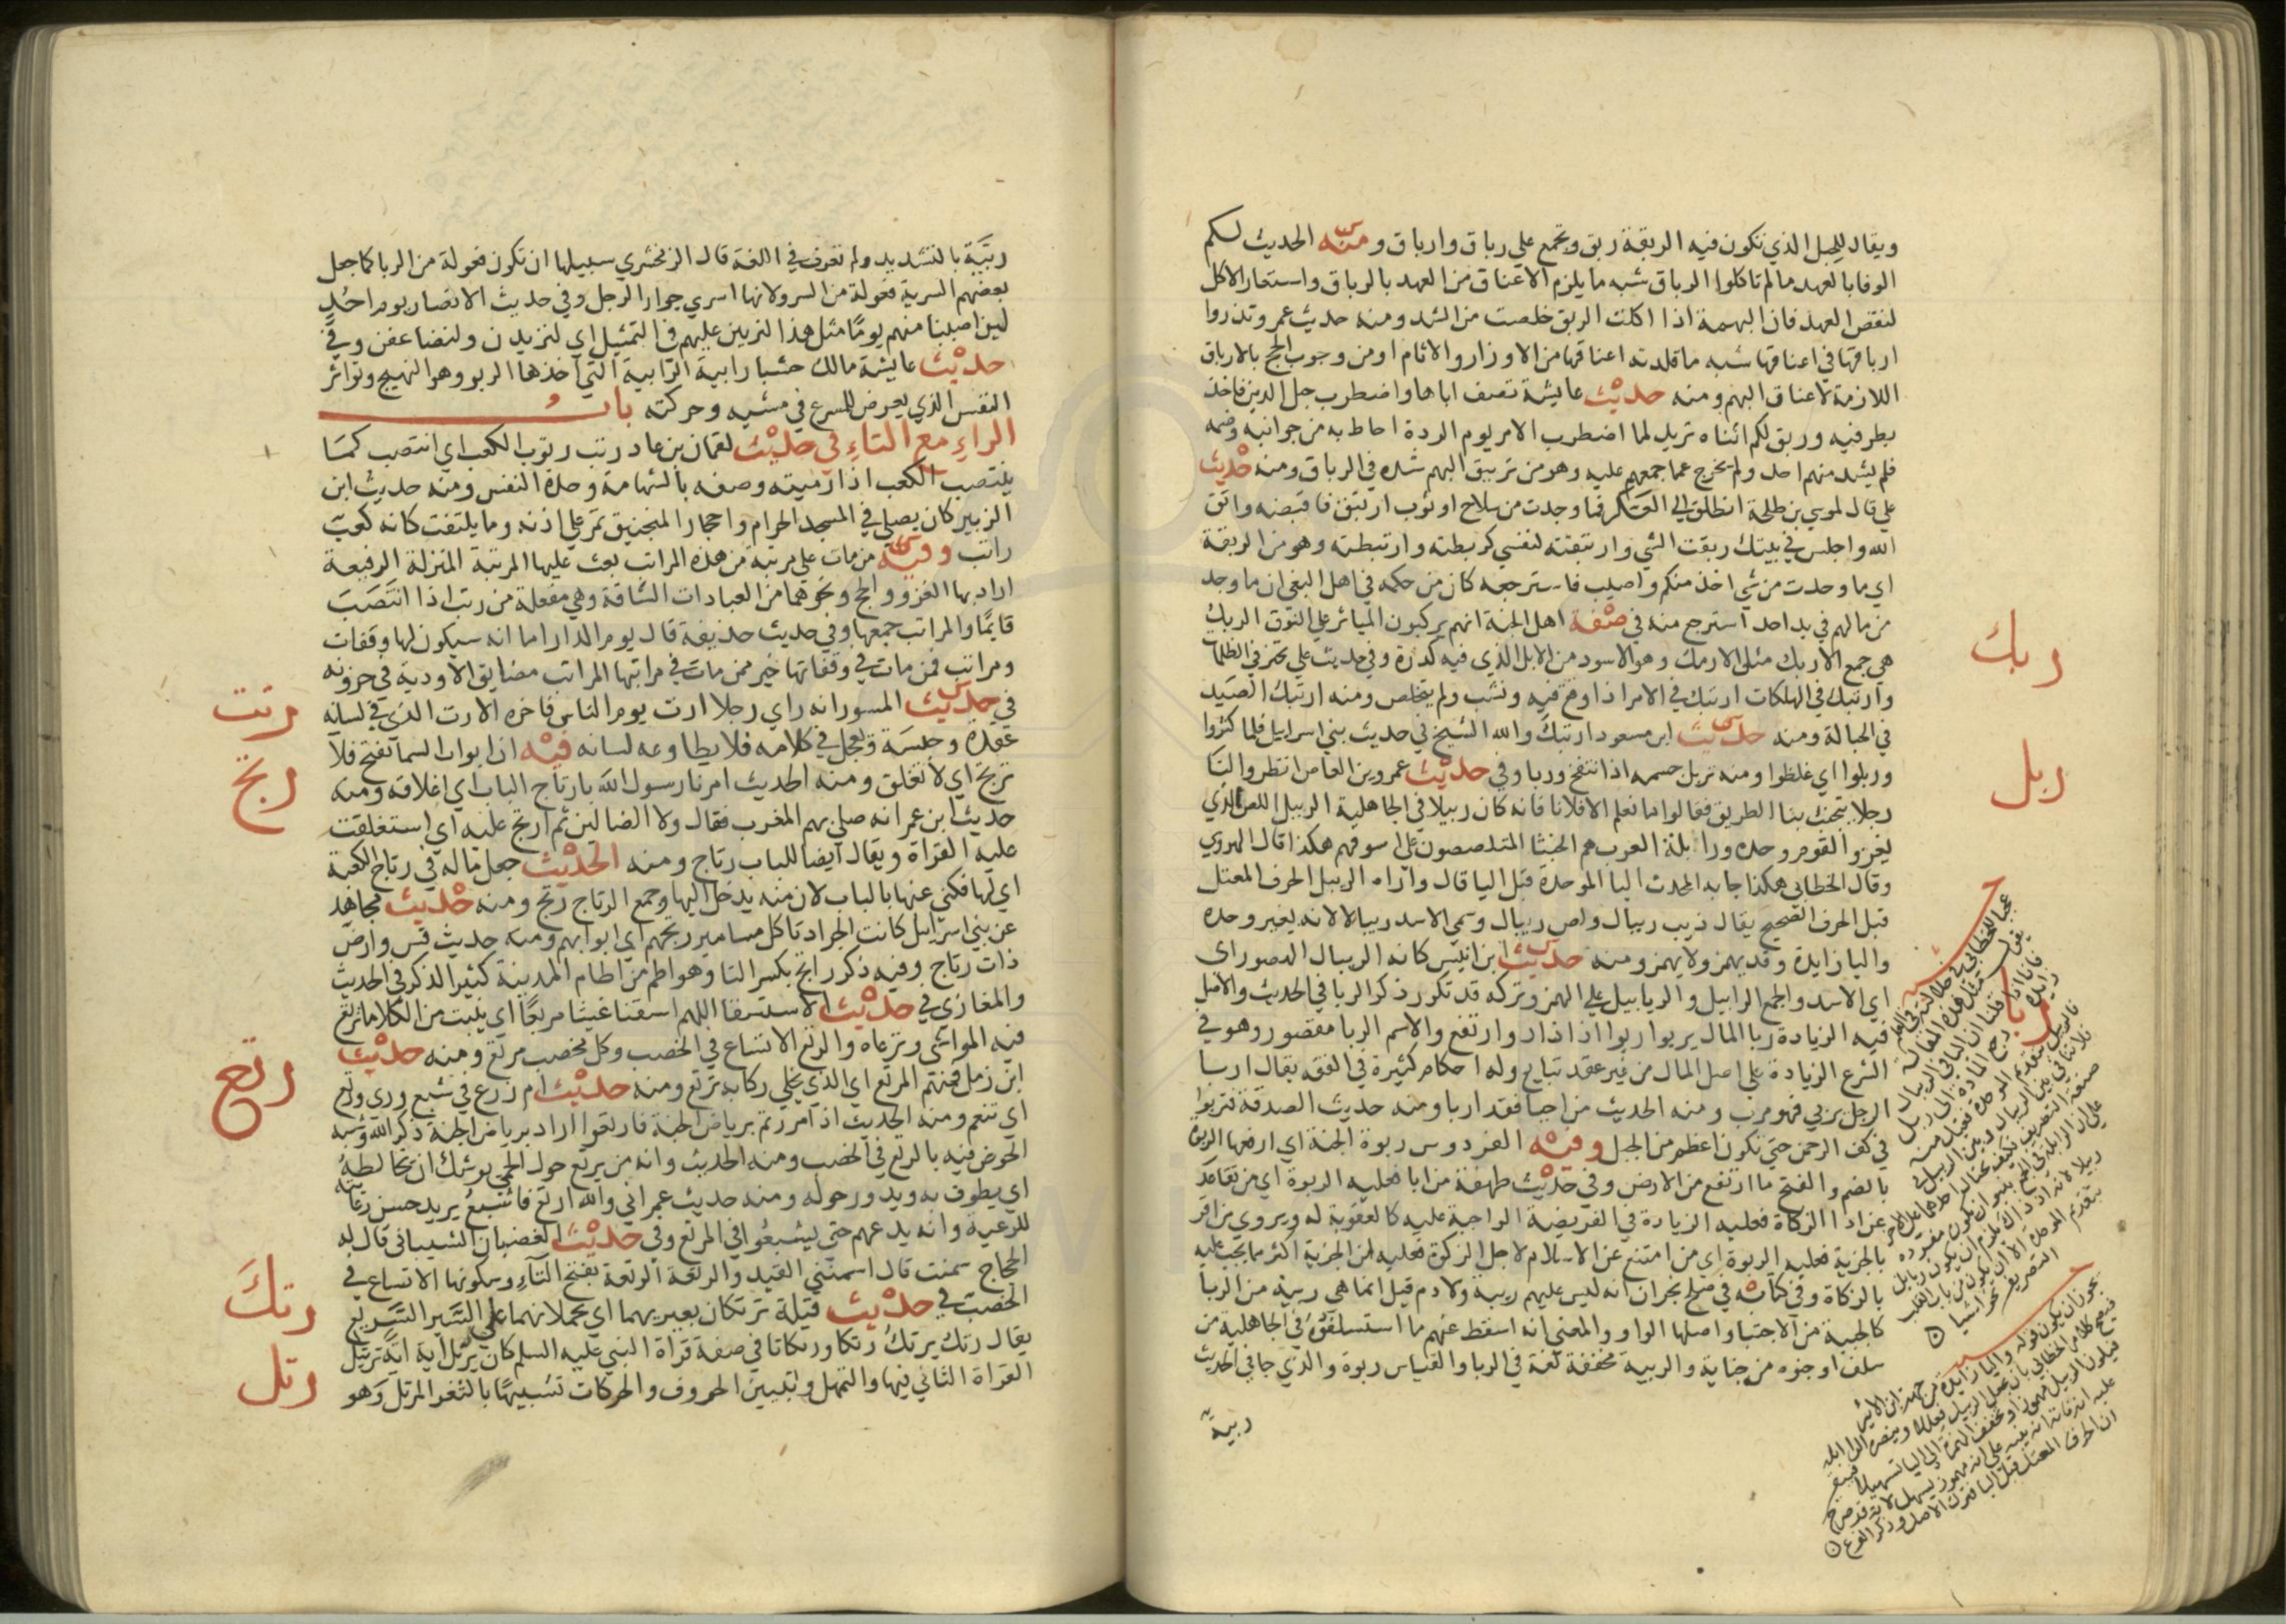 ويقال للحبل الذي تكون فيه الربقة ربق وتجمع علي رباق وارباق ومنه الحديث لكم
الوفا بالعهد ما لم تاكلوا الرباق شبه ما يلزم الاعناق من العهد بالرباق واستعار الاكل
لنقض العهد فان البهيمة اذا اكلت الربق خلصت من الشد ومنه حديث عمر وتذروا
ارباقها في اعناقها شبه ما قلدته اعناقها من الاوزار والاثام او من وجوب الحج بالارباق
اللازمة لاعناق البهم ومنه حديث عايشة تصف اباها واضطرب حبل الدين فاخذ
بطرفيه وربق لكم اثناه تريد لما اضطرب الامر يوم الردة احاط به من جوانبه وضمه
فلم يشد منهم احد ولم يخرج عما جمعهم عليه وهو من تربيق البهم شده في الرباق ومنه حديث
علي قال لموسي بن طلحة انطلق الي العسكر فما وجدت من سلاح او ثوب ارتبق فاقبضه واتق
الله واجلس في بيتك ربقت الشي وارتبقته لنفسي كربطته وارتبطته وهو من الربقة
اي ما وجدت من شي اخذ منكم واصيب فاسترجعه كان من حكمه في اهل البغي ان ما وجد
من مالهم في يد احد استرجع منه في صفة اهل الجنة انهم يركبون المياثر علي النوق الربك
هي جمع الاربك مثل الارمك وهو الاسود من الابل الذي فيه كدرة وفي حديث علي تحير في الظلمات
وارتبك في الهلكات ارتبك في الامر اذا وقع فيه ونشب ولم يتخلص ومنه ارتبك الصيد
في الحبالة ومنه حديث ابن مسعود ارتبك والله الشيخ في حديث بني اسراييل فلما كثروا
وربلوا اي غلظوا ومنه تربل جسمه اذا انتفخ وربا وفي حديث عمرو بن العاص انظروا لنا
رجلا يتجنب بنا الطريق فقالوا ما نعلم الا فلانا فانه كان ربيلا في الجاهلية الربيل اللص الذي
يغزو القوم وحده ورابلة العرب هم الخبثا المتلصصون علي اسوقهم هكذا قال الهروي
وقال الخطابي هكذا جا به المحدث البا الموحدة قبل اليا قال واراه الريبل الحرف المعتل
قبل الحرف الصحيح يقال ذيب ريبال ولص ريبال وسمي الاسد ريبالا لانه يغير وحده
واليا زايدة وقد يهمز ولا يهمز ومنه حديث ابن انيس كانه الريبال الهصور اي
اي الاسد والجمع الرابيل والريابيل علي الهمز وتركه قد تكرر ذكر الربا في الحديث والاصل
فيه الزيادة ربا المال يربو اربوا اذا زاد وارتفع والاسم الربا مقصور وهو في
الشرع الزيادة علي اصل المال من غير عقد تبايع وله احكام كثيرة في الفقه يقال اربا
الرجل يربي فهو مرب ومنه الحديث من اجبا فقد اربا ومنه حديث الصدقة فتربوا
في كف الرحمن حتي تكون اعظم من الجبل وفيه الفردوس ربوة الجنة اي ارفعها الربوة
بالضم والفتح ما ارتفع من الارض وفي حديث طهفة من ابا فعليه الربوة اي من تقاعد
عن اداا الزكاة فعليه الزيادة في الفريضة الواجبة عليه كالعقوبة له ويروي من اقر
بالجزية فعليه الربوة اي من امتنع عن الاسلام لاجل الزكوة فعليه من الجزية اكثر مما يجب عليه
بالزكاة وفي كتابه في صلح نجران انه ليس عليهم ربية ولا دم قيل انما هي ربية من الربا
كالحبية من الاحتبا واصلها الواو والمعني انه اسقط عنهم ما استسلفوه في الجاهلية من
سلف او جنوه من جناية والربية مخففة لغة في الربا والقياس ربوة والذي جا في الحديث
ربية
ربك
ربل
ربا
ربية بالتشديد ولم تعرف في اللغة قال الزمخشري سبيلها ان تكون فعولة من الربا كما جعل
بعضهم السرية فعولة من السرو لانها اسري جوار الرجل وفي حديث الانصار يوم احد
لين اصبنا منهم يوما مثل هذا لنربين عليهم في التمثيل اي لنزيدن ولنضاعفن وفي
حديث عايشة مالك حشيا رابية الرابية التي اخذها الربو وهو النهيج وتواتر
النفس الذي يعرض للمسرع في مشيه وحركته باب
الراء مع التاء في حديث لقمان بن عاد رتب رتوب الكعب اي انتصب كما
ينتصب الكعب اذا رميته وصفه بالشهامة وحدة النفس ومنه حديث ابن
الزبير كان يصلي في المسجد الحرام واحجار المنجنيق تمر علي اذنه وما يلتفت كانه كعب
راتب وفيه من مات علي مرتبة من هذه المراتب بعث عليها المرتبة المنزلة الرفيعة
اراد بها الغزو والحج ونحوهما من العبادات الشاقة وهي مفعلة من رتب اذا انتصب
قايما والمراتب جمعها وفي حديث حذيفة قال يوم الدار اما انه سيكون لها وقفات
ومراتب فمن مات في وقفاتها خير ممن مات في مراتبها المراتب مضايق الاودية في حزونه
في حديث المسور انه راي رجلا ارت يوم الناس فاخره الارت الذي في لسانه
عقدة وحبسة ويعجل في كلامه فلا يطاوعه لسانه فيه ان ابواب السما تفتح فلا
ترتج اي لا تغلق ومنه الحديث امرنا رسول الله بارتاج الباب اي اغلاقه ومنه
حديث ابن عمر انه صلي بهم المغرب فقال ولا الضالين ثم ارتج عليه اي استغلقت
عليه القراة ويقال ايضا للباب رتاج ومنه الحديث جعل ماله في رتاج الكعبة
اي لها فكني عنها بالباب لان منه يدخل اليها وجمع الرتاج رتج ومنه حديث مجاهد
عن بني اسراييل كانت الجراد تاكل مسامير رتجهم اي ابوابهم ومنه حديث قس وارض
ذات رتاج وفيه ذكر راتج بكسر التا وهو اطم من اطام المدينة كثير الذكر في الحديث
والمغازي في حديث الاستسقا اللهم اسقنا غيثا مربعا اي ينبت من الكلا ما ترتع
فيه المواشي وترعاه والرتع الاتساع في الخصب وكل مخصب مرتع ومنه حديث
ابن زمل فمنتم المرتع اي الذي يخلي ركابه ترتع ومنه حديث ام زرع في شبع وري ورتع
اي تنعم ومنه الحديث اذا مررتم برياض الجنة فارتعوا اراد برياض الجنة ذكر الله وشبه
الخوض فيه بالرتع في الخصب ومنه الحديث وانه من يرتع حول الحمي يوشك ان يخالطه
اي يطوف به ويدور حوله ومنه حديث عمر اني والله ارتع فاشبع يريد حسن رعايته
للرعية وانه يدعهم حتي يشبعوا في المرتع وفي حديث الغضبان الشيباني قال له
الحجاج سمنت قال اسمنني القيد والرتعة الرتعة بفتح التاء وسكونها الاتساع في
الخصب في حديث قيلة ترتكان بعيريهما اي يحملانهما علي السير السريع
يقال رتك يرتك رتكا ورتكانا في صفة قراة النبي عليه السلم كان يرتل اية اية ترتيل
القراة التاني فيها والتمهل وتبيين الحروف والحركات تشبيها بالثغر المرتل وهو
رتت
رتج
رتع
رتك
رتل